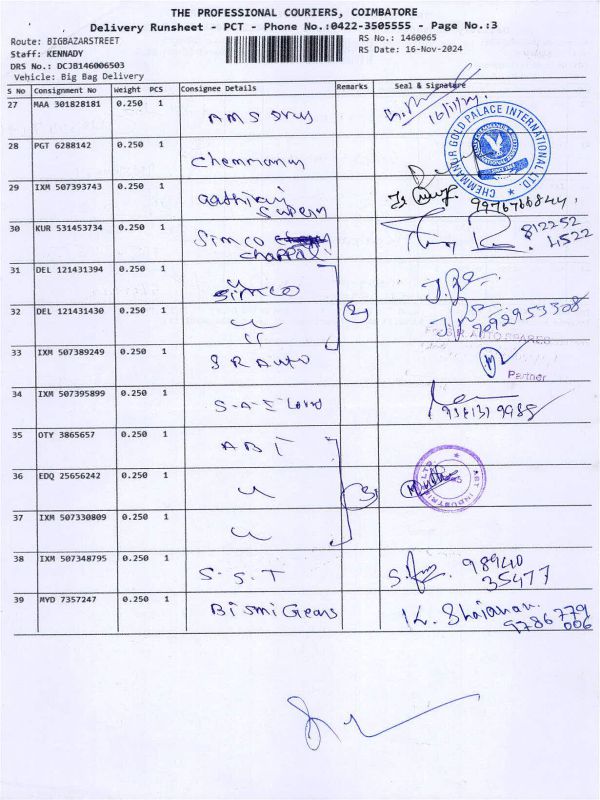 THE PROFESSIONAL COURIERS, COIMBATORE
Delivery Runsheet - PCT - Phone No.:0422-3505555 - Page No.:3
Route: BIGBAZARSTREET
RS No.: 1460065
Staff: KENNADY
RS Date: 16-Nov-2024
DRS No.: DCJB146006503
Vehicle: Big Bag Delivery
S No Consignment No Weight PCS Consignee Details Remarks Seal & Signature
27 MAA 301828181 0.250 1 AMS
16/11/24
28 PGT 6288142 0.250 1 Chemmanur
CHEMMANUR GOLD PALACE INTERNATIONAL LTD.
29 IXM 507393743 0.250 1
9976766844,
30 KUR 531453734 0.250 1 Simco
chappal
812252
4522
31 DEL 121431394 0.250 1 Simco
32 DEL 121431430 0.250 1 2
9092953308
33 IXM 507389249 0.250 1 S R Auto
For S.R. AUTO SPARES
Partner
34 IXM 507395899 0.250 1 S-A-S
35 OTY 3865657 0.250 1 ABT
36 EDQ 25656242 0.250 1 3
37 IXM 507330809 0.250 1
38 IXM 507348795 0.250 1 S.S.T
98940
35477
39 MYD 7357247 0.250 1 Bismi Gears
K. Shajahan.
9786779
006